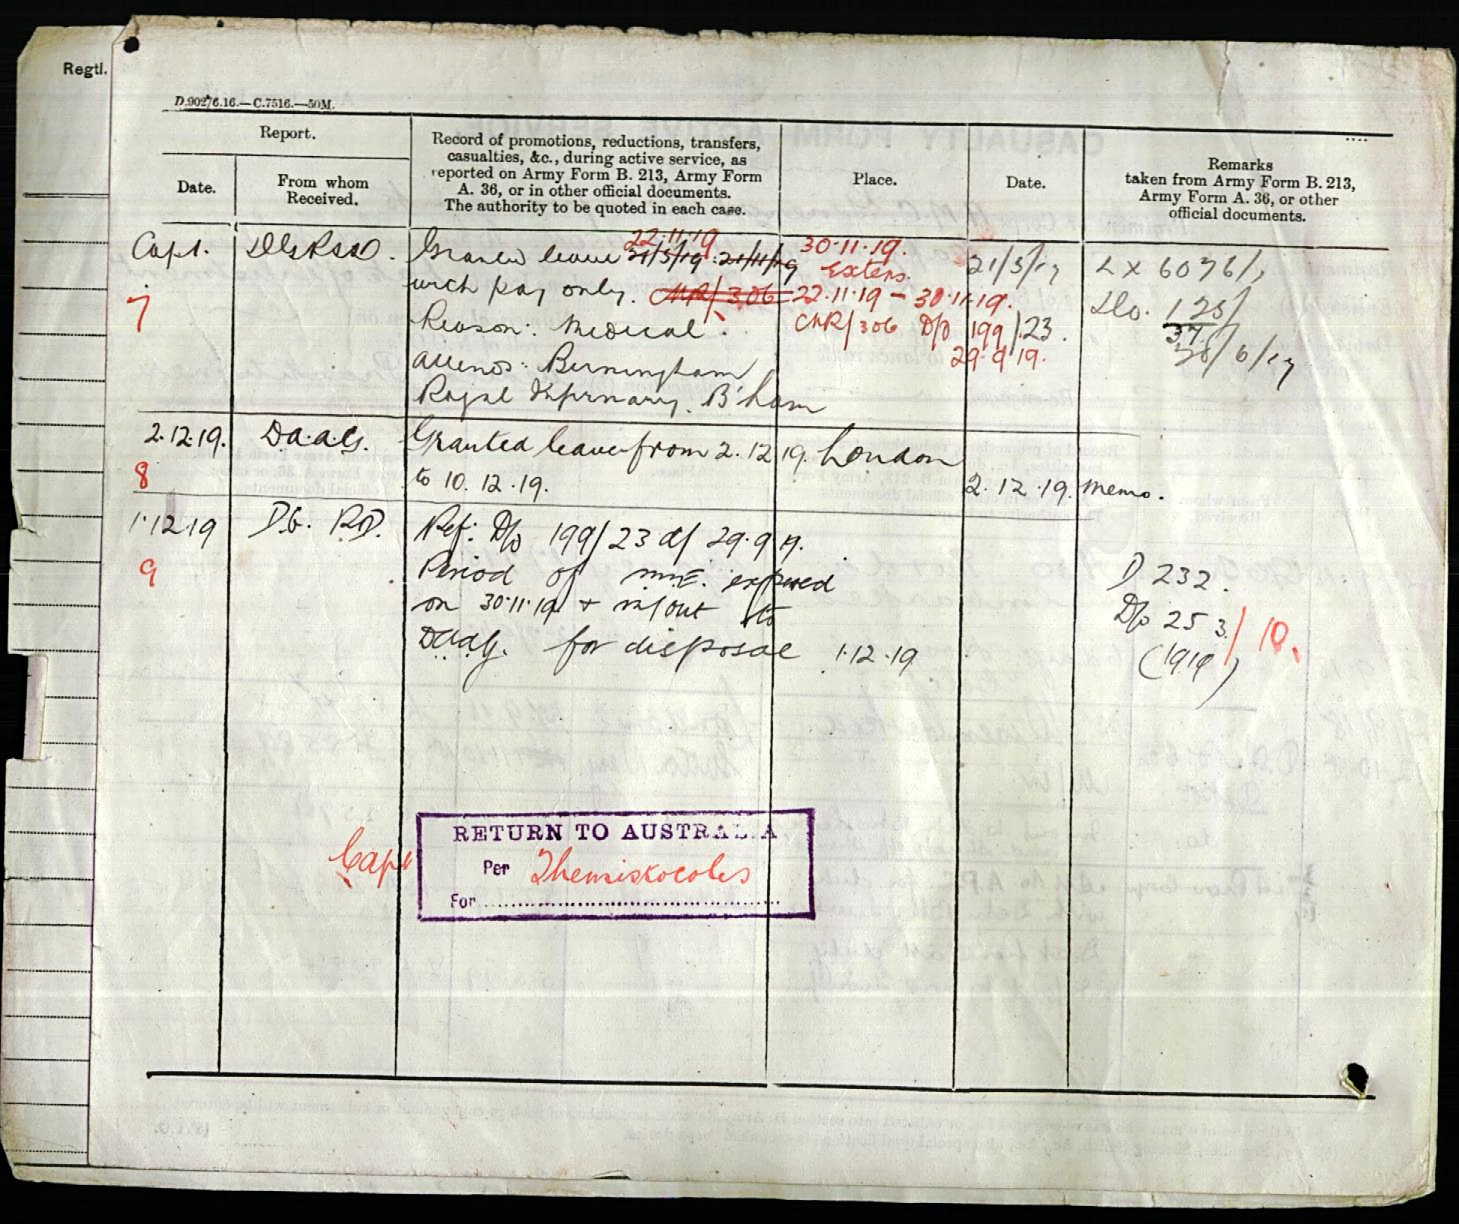 Regtl.
D.90276.16.—C.7516.—50M.
Report.
Date.
From whom
Received.
Record of promotions, reductions, transfers,
casualties, &c., during active service, as
reported on Army Form B. 213, Army Form
A. 36, or in other official documents.
The authority to be quoted in each case.
Place.
Date.
Remarks
taken from Army Form B. 213,
Army Form A. 36, or other
official documents.
22.11.19 30.11.19.
Capt. leave 21/5/19. 21/11/19 Extens. 21/5/19 LX 6076/
7 with pay only. CMR/306 22.11.19 – 30.11.19. Do. 128/
Reason: Medical. CMR/306 D/o 199/23. 37
29.9.19.
Attends: Birmingham
Royal Infirmary. B'ham
2.12.19. D.A.A.G. Granted leave from 2.12.19. London
8 to 10.12.19. 2.12.19. memo.
1.12.19 D.G. R&D. Ref: D/o 199/23 d/ 29.9.19.
9 Period of NME. expired D 232.
on 30.11.19 & m/out to D/o 253/10.
DAAG. for disposal 1.12.19 (1919)
RETURN TO AUSTRALIA
Capt Per Themistocles
For